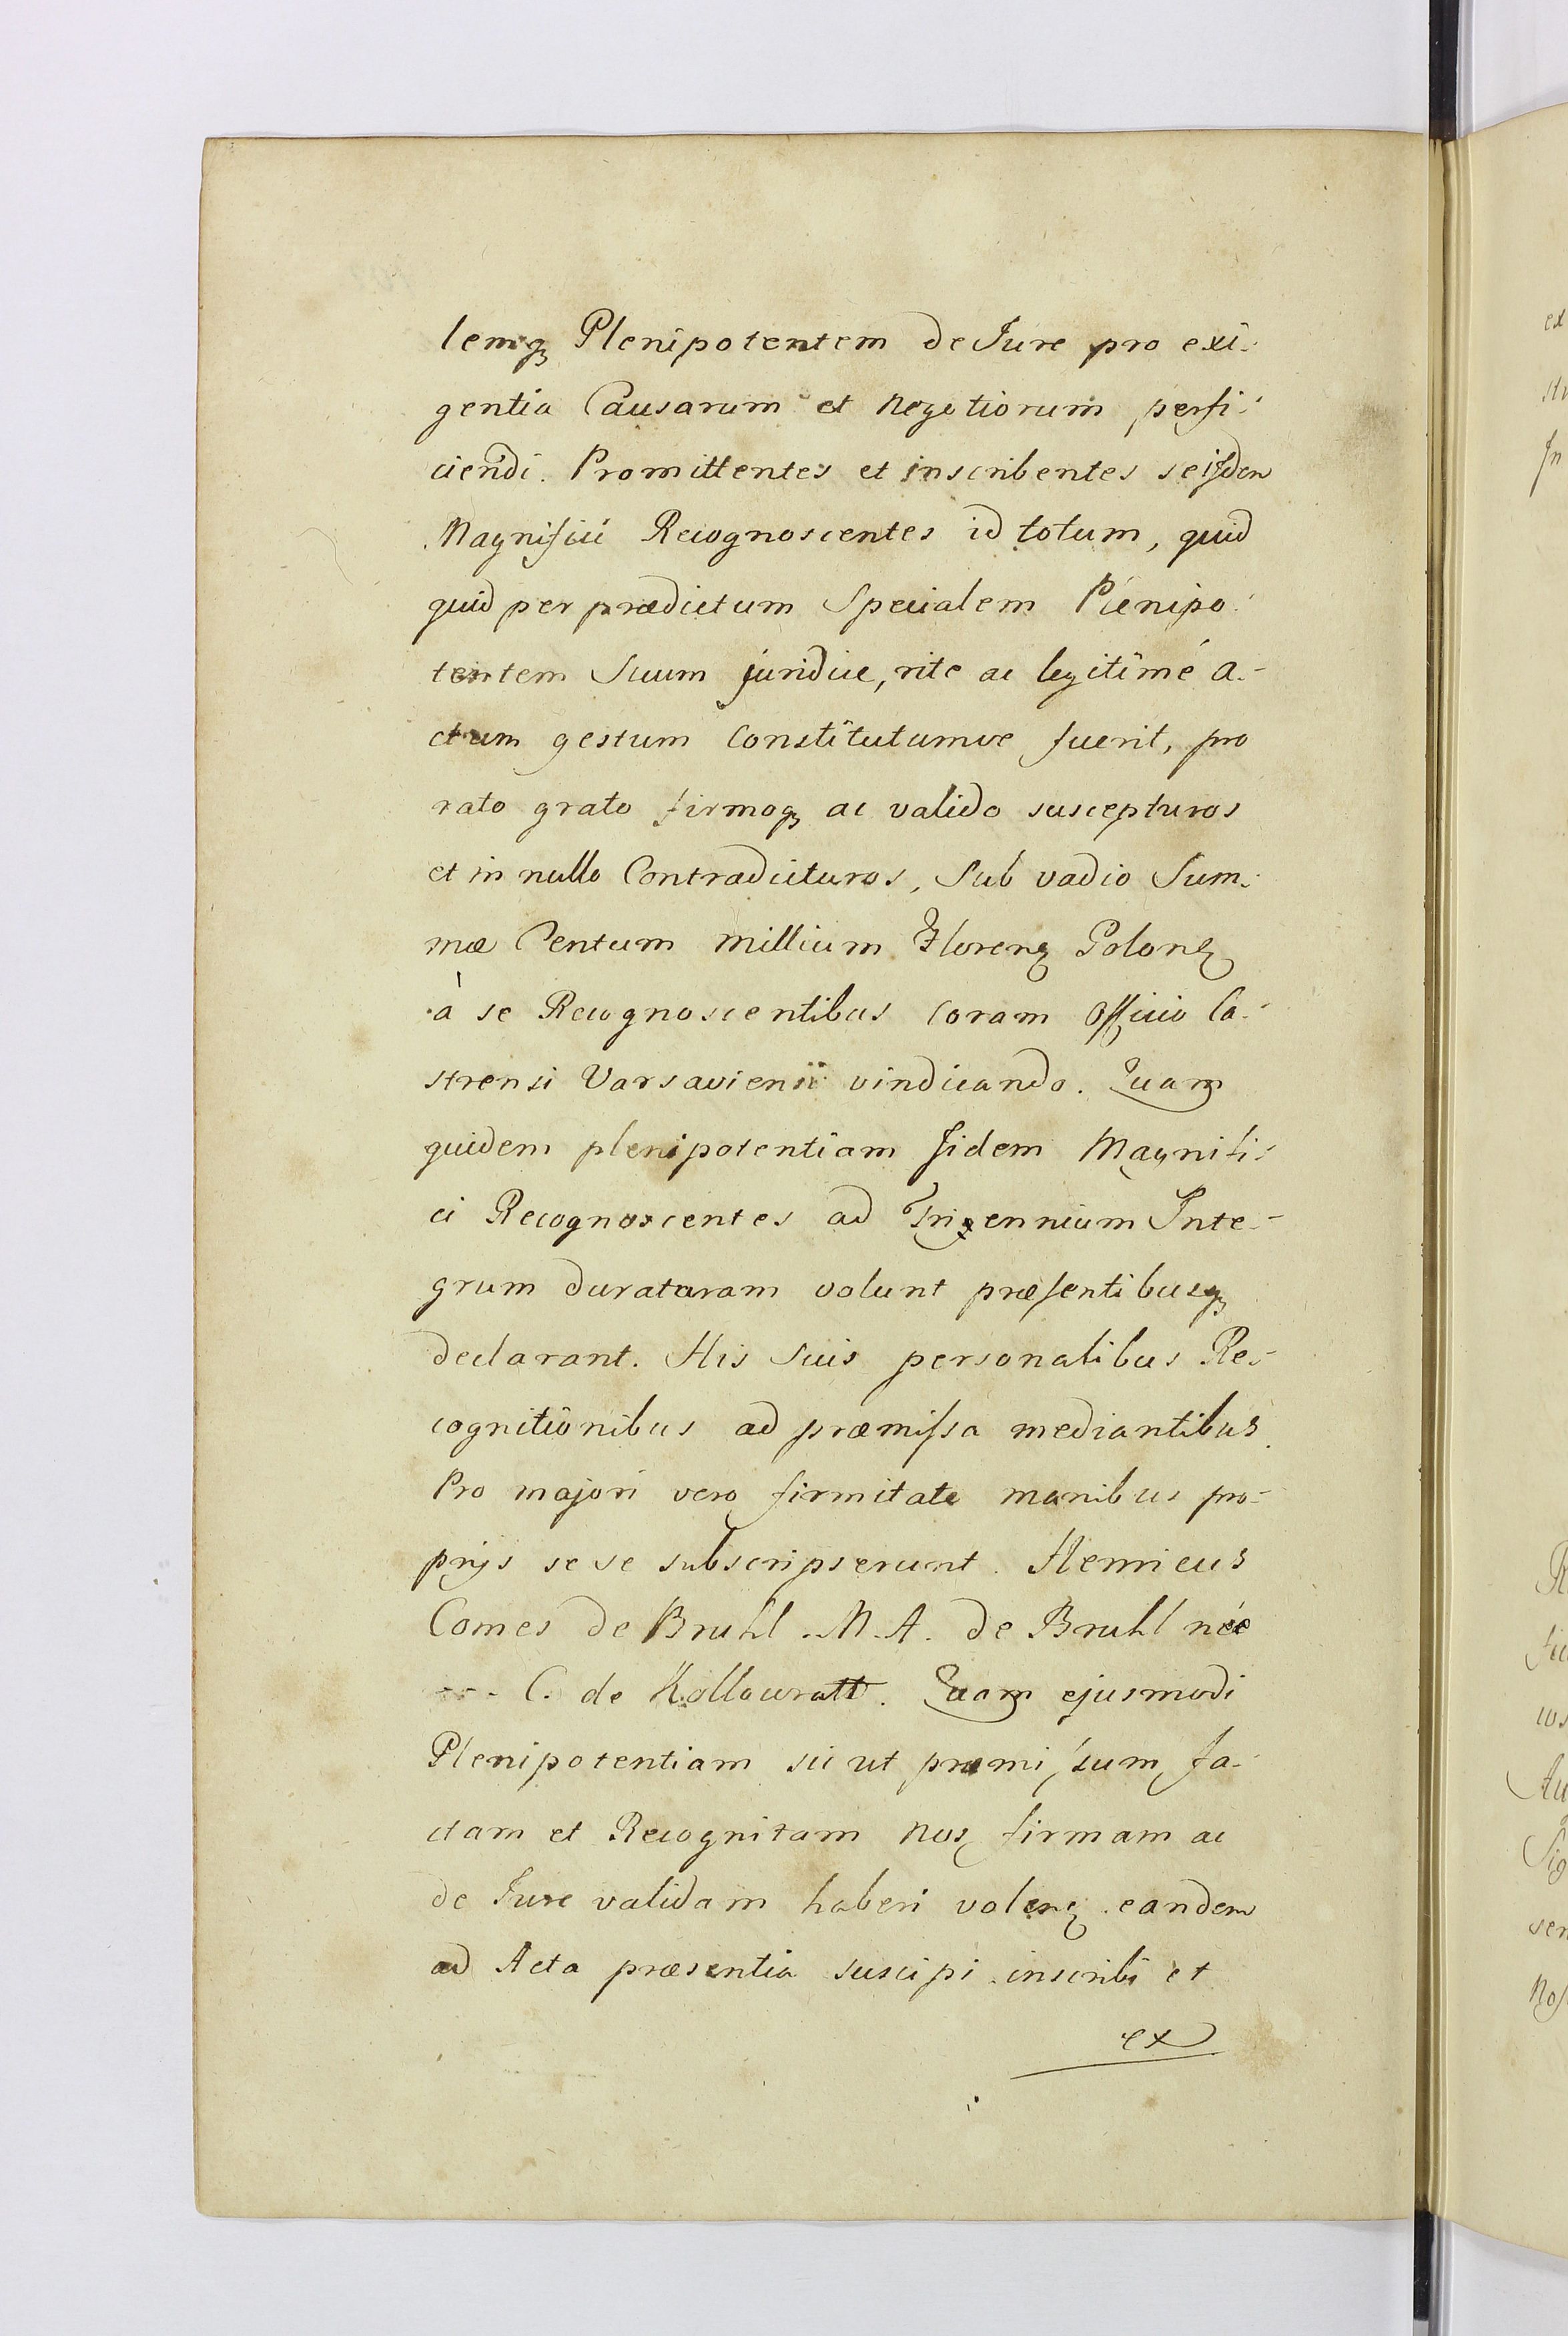 lemqꝫ Plenipotentem de Jure pro exi-
gentia Causarum et Negotiorum perfi-
ciendi. Promittentes et inscribentes se ijdem
Magnifici Recognoscentes id totum, quid
quid per prædictum Specialem Plenipo-
tentem Suum juridice, rite ac legitimé a-
ctum gestum Constitutumve fuerit, pro
rato grato firmoqꝫ ac valido suscepturos
et in nullo Contradicturos, Sub vadio Sum-
mæ Centum millium Florenꝫ Polonꝫ
à se Recognoscentibus coram Officio Ca-
strensi Varsaviensi vindicando. Quam
quidem plenipotentiam Iidem Magnifi-
ci Recognoscentes ad Triennium Inte-
grum duraturam volunt præsentibusqꝫ
declarant. His Suis personalibus Re-
cognitionibus ad præmissa mediantibus.
Pro majori vero firmitate manibus pro-
prijs se se subscripserunt. Henricus
Comes de Bruhl. M. A. de Bruhl née
C. de Kollowratt. Quam ejusmodi
Plenipotentiam sic ut præmissum, fa-
ctam et Recognitam Nos firmam ac
de Jure validam haberi volenꝫ eandem
ad Acta præsentia suscipi inscribi et
ex